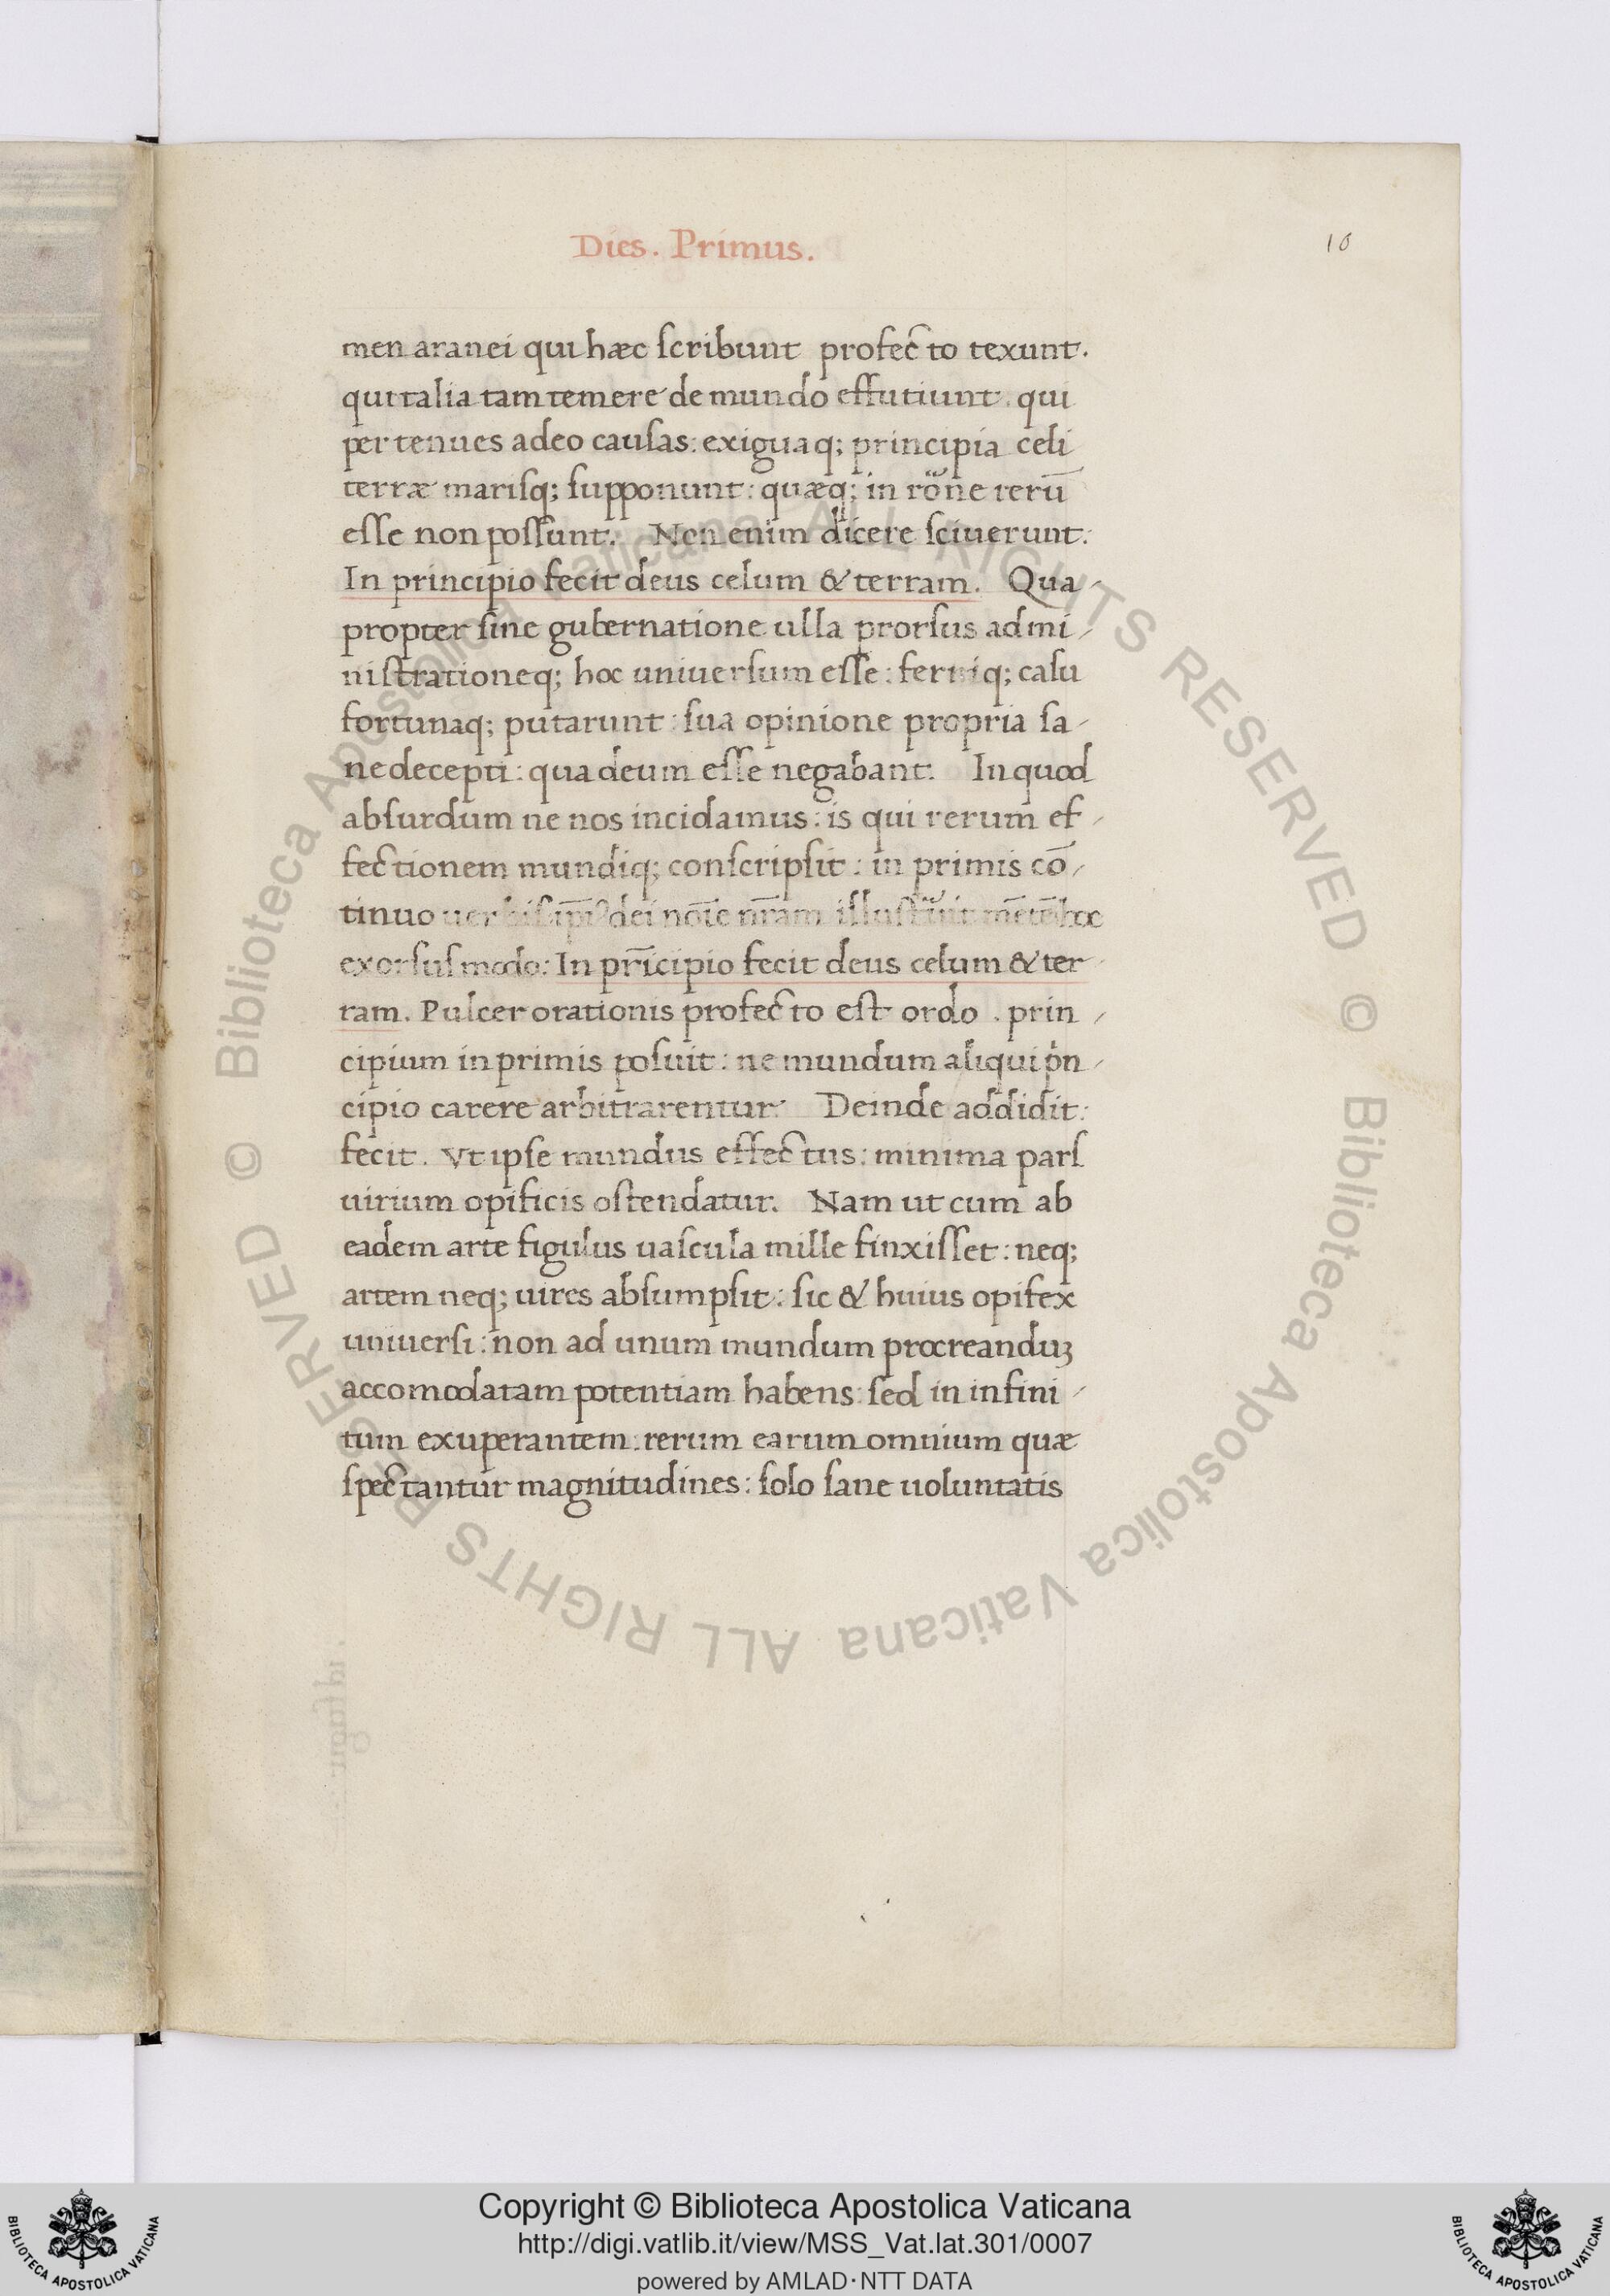 Dies. Primus.
10
men aranei qui hæc scribunt profecto texunt.
qui talia tam temere de mundo effutiunt. qui
per tenues adeo causas: exiguaq; principia celi
terræ marisq; supponunt: quæq; in rõne rerū
esse non possunt. Non enim dicere sciuerunt:
In principio fecit deus celum & terram. Qua-
propter sine gubernatione ulla prorsus admi-
nistrationeq; hoc uniuersum esse: ferriq; casu
fortunaq; putarunt: sua opinione propria sa-
ne decepti: qua deum esse negabant. In quod
absurdum ne nos incidamus: is qui rerum ef-
fectionem mundiq; conscripsit: in primis cō-
tinuo dei nōīe nr̄am mētē hoc
exorsus modo: In prīcipio fecit deus celum & ter-
ram. Pulcer orationis profecto est ordo. prin-
cipium in primis posuit: ne mundum aliqui pn-
cipio carere arbitrarentur. Deinde addidit:
fecit. Vt ipse mundus effectus: minima pars
uirium opificis ostendatur. Nam ut cum ab
eadem arte figulus uascula mille finxisset: neq;
artem neq; uires absumpsit: sic & huius opifex
uniuersi: non ad unum mundum procreanduʒ
accomodatam potentiam habens: sed in infini-
tum exuperantem: rerum earum omnium quæ
spectantur magnitudines: solo sane uoluntatis
© Biblioteca Apostolica Vaticana ALL RIGHTS RESERVED
© Biblioteca Apostolica Vaticana ALL RIGHTS RESERVED
Copyright © Biblioteca Apostolica Vaticana
http://digi.vatlib.it/view/MSS_Vat.lat.301/0007
powered by AMLAD·NTT DATA
BIBLIOTECA APOSTOLICA VATICANA
BIBLIOTECA APOSTOLICA VATICANA